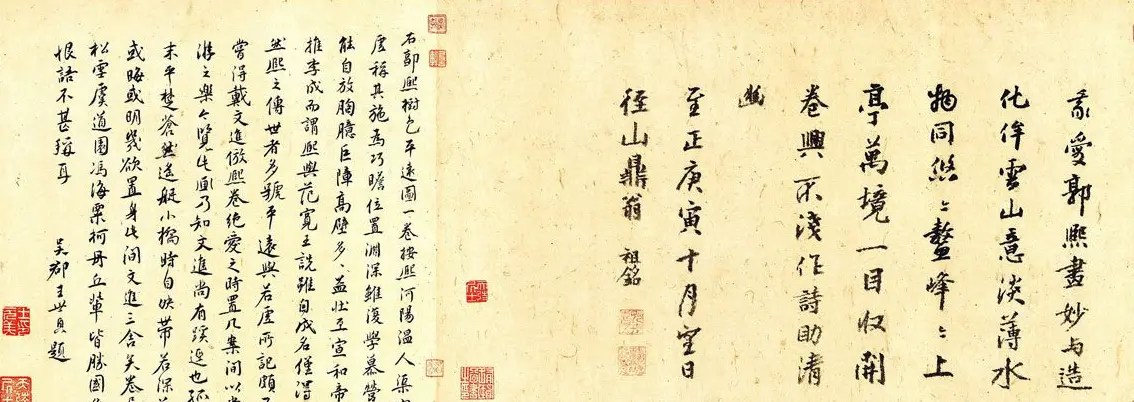 我愛郭熙畫妙與造
化侔雲山意淡薄水
物同悠〻鼇峰〻上
亭萬境一目收開
卷興不淺作詩助清
幽
至正庚寅十月望日
徑山鼎翁 祖銘
右郭熙樹色平遠圖一卷按熙河陽溫人
虛稱其施為巧贍位置淵深雖復學慕營
能自放胸臆巨障高壁多〻益壯至宣和帝
推李成而謂熙與范寬王詵雖自成名僅得
然熙之傳世者多號平遠與若虛所記頗
嘗得戴文進倣熙卷絕愛之時置几案間以當
游之樂今覽此圖乃知文進尚有蹊逕也孤
末平楚蒼然送艇小橋時自映帶若深
或晦或明幾欲置身此間文進三舍矣卷
松雪虞道園馮海粟柯丹丘輩皆勝國
恨語不甚稱耳
吳郡王世貞題